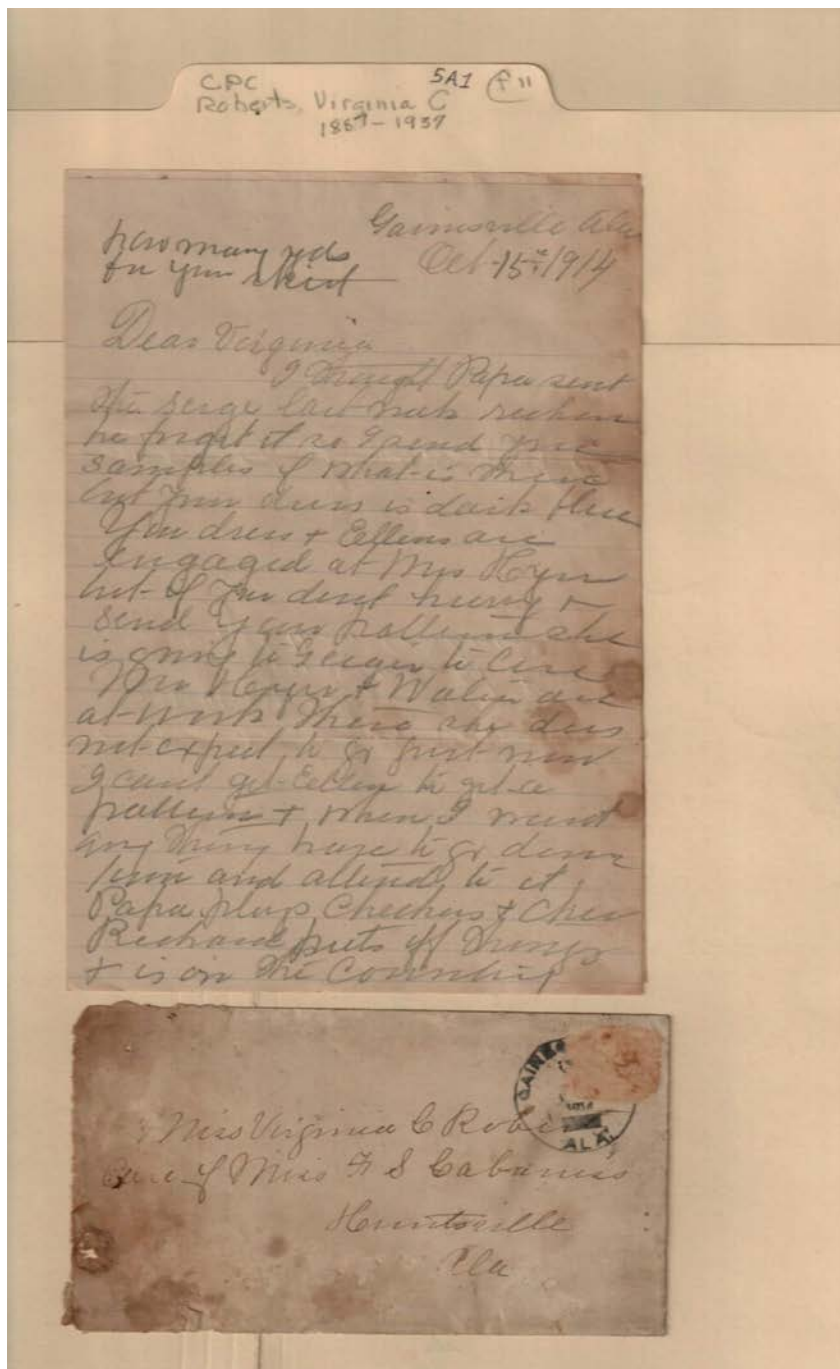 CPC 5A1 f11
Roberts, Virginia C
1887-1937
Gainesville Ala
Oct-15th 1914
how many yds
in your skirt
Dear Virginia
I thought Papa sent
the serge last week reckon
he forgot it so I send you
samples of what is there
but your dress is dark blue
Your dress + Ellens are
engaged at Mrs
but if you dont hurry +
send your pattern she
is going to Geiger to live
Mr + are
at work there she does
not expect to go just now
I cant get Ellen to get a
pattern + when I want
any thing have to go down
town and attend to it
Papa plays Checkers + Chess
Richard puts off things
+ is on the
GAINES
ALA.
Miss Virginia C Roberts
Care of Miss F S Cabaniss
Huntsville
Ala